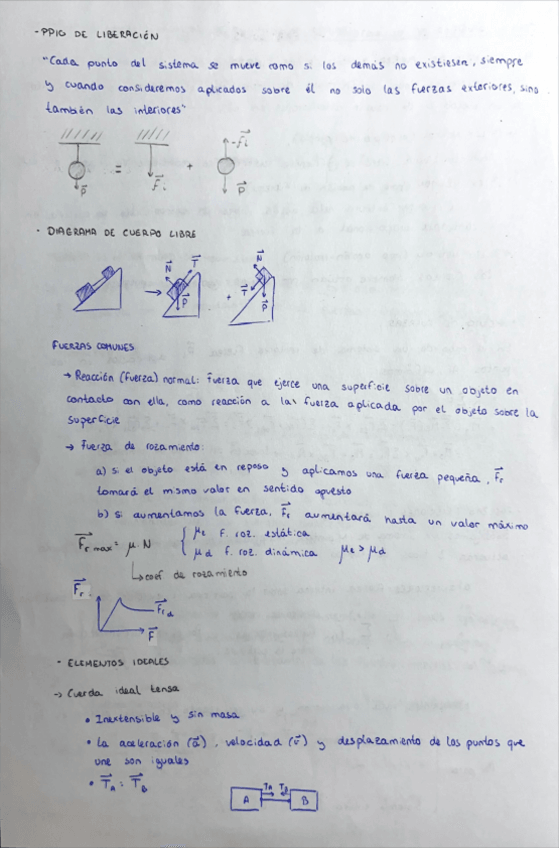 - PPIO DE LIBERACIÓN
"Cada punto del sistema se mueve como si los demás no existiesen, siempre
y cuando consideremos aplicados sobre él no solo las fuerzas exteriores, sino
también las interiores"
-f⃗i
= +
P⃗ F⃗i P⃗
· DIAGRAMA DE CUERPO LIBRE
N⃗ T⃗ N⃗
→ + T⃗
P⃗ P⃗
FUERZAS COMUNES
→ Reacción (fuerza) normal: fuerza que ejerce una superficie sobre un objeto en
contacto con ella, como reacción a la fuerza aplicada por el objeto sobre la
superficie
→ Fuerza de rozamiento:
a) si el objeto está en reposo y aplicamos una fuerza pequeña, F⃗r
tomará el mismo valor en sentido opuesto
b) si aumentamos la fuerza, F⃗r aumentará hasta un valor máximo
F⃗r max = μ · N { μe f. roz. estática
μd f. roz. dinámica μe > μd
↳ coef de rozamiento
F⃗r
F⃗r d
F⃗
- ELEMENTOS IDEALES
→ Cuerda ideal tensa
• Inextensible y sin masa
• La aceleración (a⃗), velocidad (v⃗) y desplazamiento de los puntos que
une son iguales
• T⃗A = T⃗B
A TA TB B